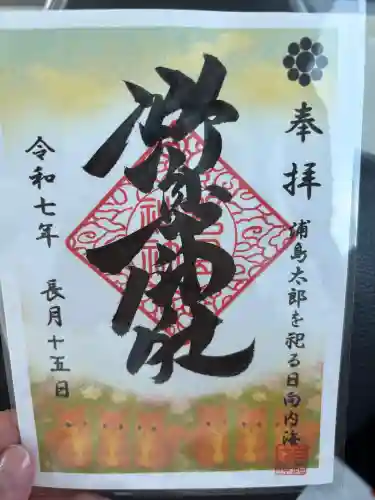 奉拝
浦島太郎を祀る日向内海
野島神社
令和七年
長月十五日